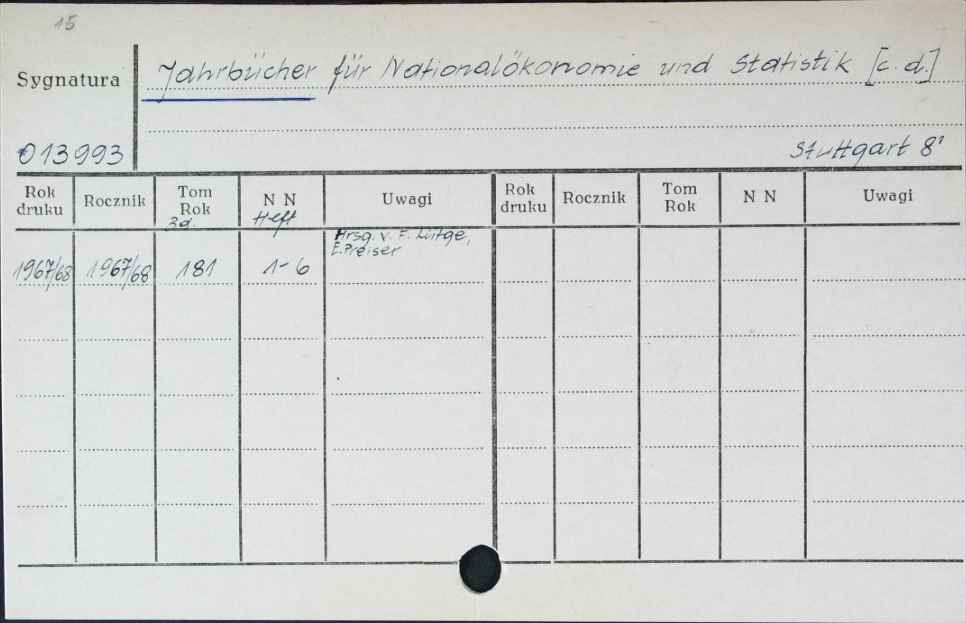 15
Sygnatura
Jahrbücher für Nationalökonomie und Statistik [c. d.]
013993
Stuttgart 8°
Rok druku Rocznik Tom Rok N N Uwagi Rok druku Rocznik Tom Rok N N Uwagi
Heft
Hrsg. v. F. Lütge,
E. Preiser
1967/68 1967/68 181 1-6